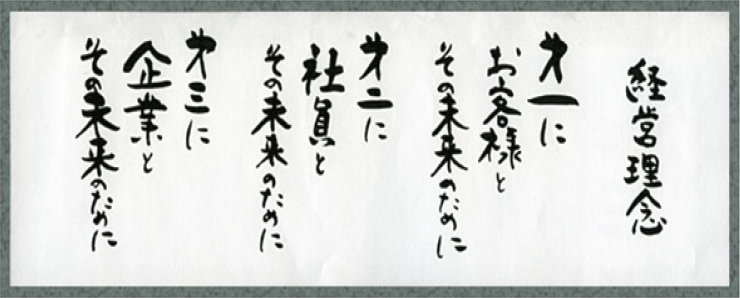 経営理念
才一に
お客様と
その未来のために
才二に
社員と
その未来のために
才三に
企業と
その未来のために